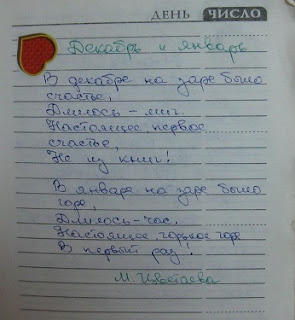 ДЕНЬ ЧИСЛО
Декабрь и январь
В декабре на заре было
счастье,
Длилось – миг.
Настоящее, первое
счастье,
Не из книг!
В январе на заре было
горе,
Длилось – час.
Настоящее, горькое горе
В первый раз!
М. Цветаева